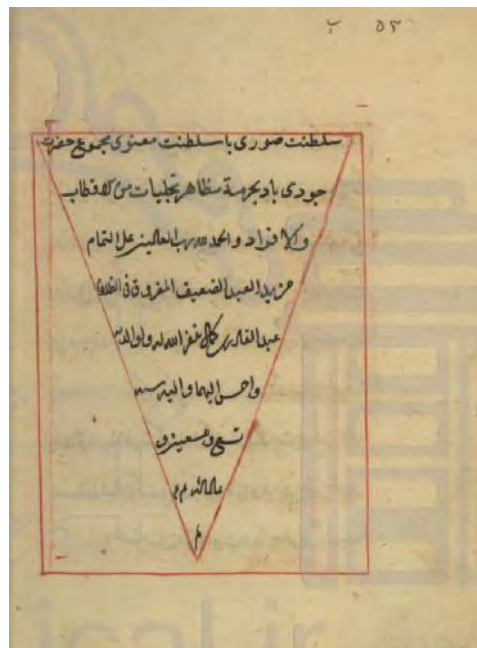 ٥٣ ب
سلطنت صوری باسلطنت معنوی مجموع حضرت
جودی باد بحرمة مظاهر تجلیات من الاقطاب
والافراد والحمد لله رب العالمین علی التمام
من ید العبد الضعیف المفروق فی
عبدالقادر غفر الله له ولوالدیه
واحسن الیهما والیه سنه
تسع و تسعین و